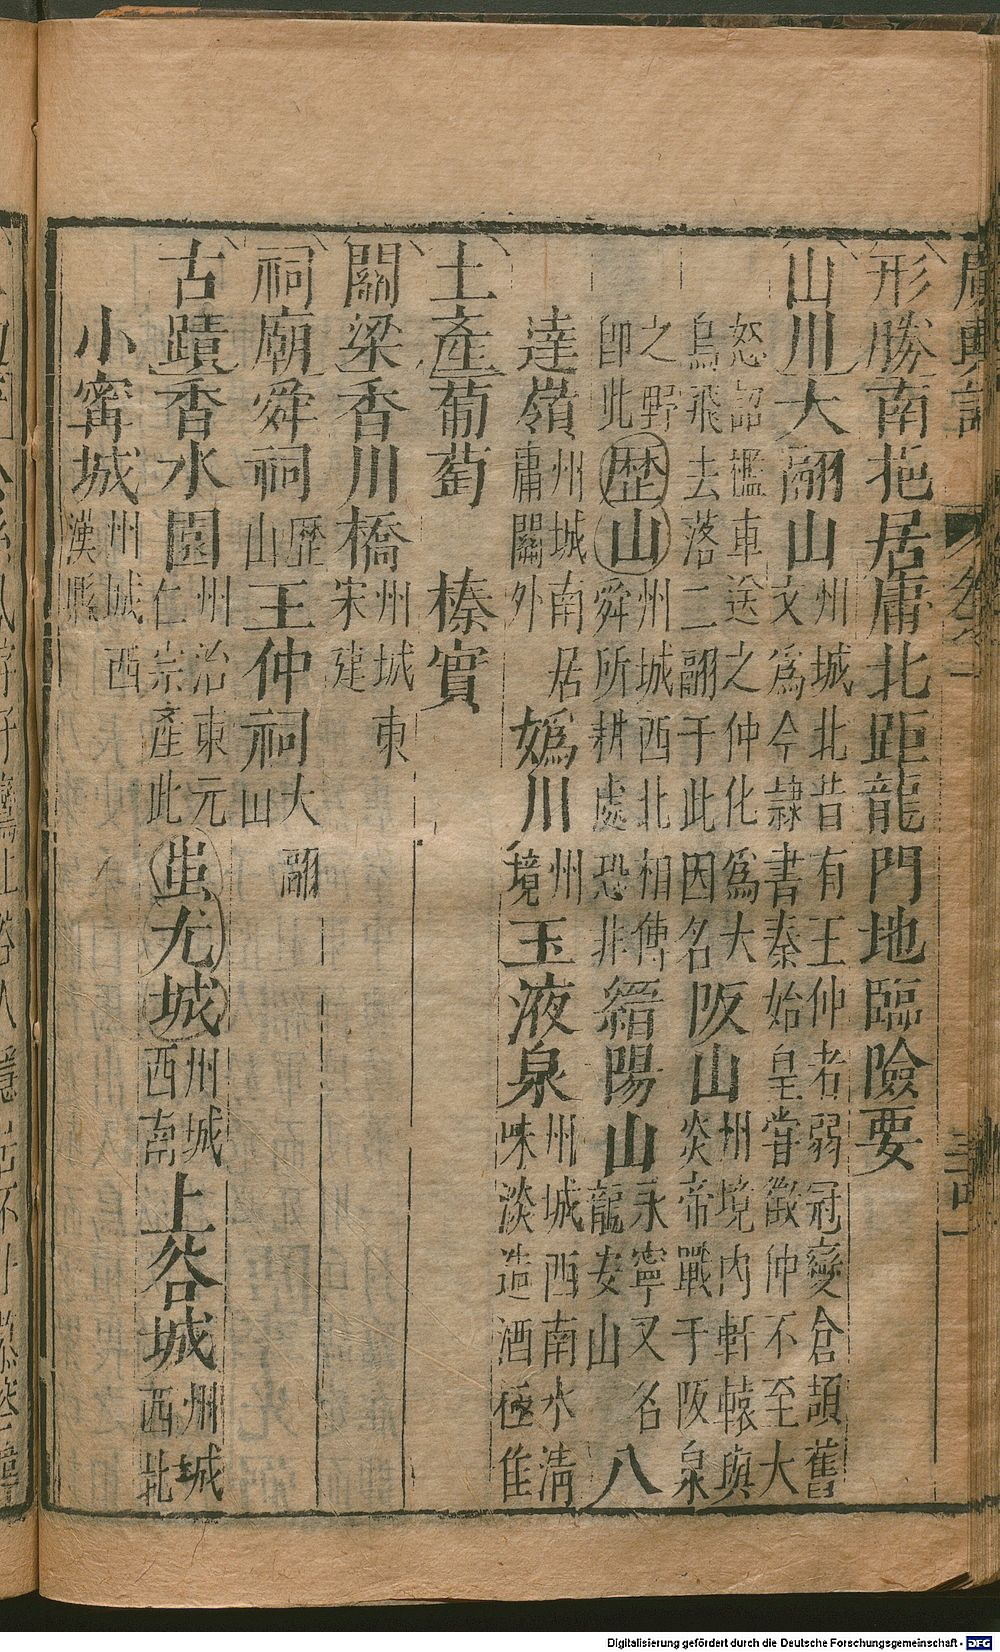 廣輿記 卷之一
形勝南挹居庸北距龍門地臨險要
山川大翮山州城北昔有王仲者弱冠變倉頡舊文爲今隷書秦始皇嘗徵仲不至大
怒詔檻車送之仲化爲大烏飛去落二翮于此因名阪山州境內軒轅與炎帝戰于阪泉
之野卽此歴山州城西北相傳舜所耕處恐非縉陽山永寧又名龍安山八
達嶺州城南居庸關外嬀川州境玉液泉州城西南水淸味淡造酒極佳
土產葡萄 榛實
關梁香川橋州城東宋建
祠廟舜祠歴山王仲祠大翮山
古蹟香水園州治東元仁宗產此蚩尤城州城西南上谷城州城西北
小寗城州城西漢縣
Digitalisierung gefördert durch die Deutsche Forschungsgemeinschaft - DFG